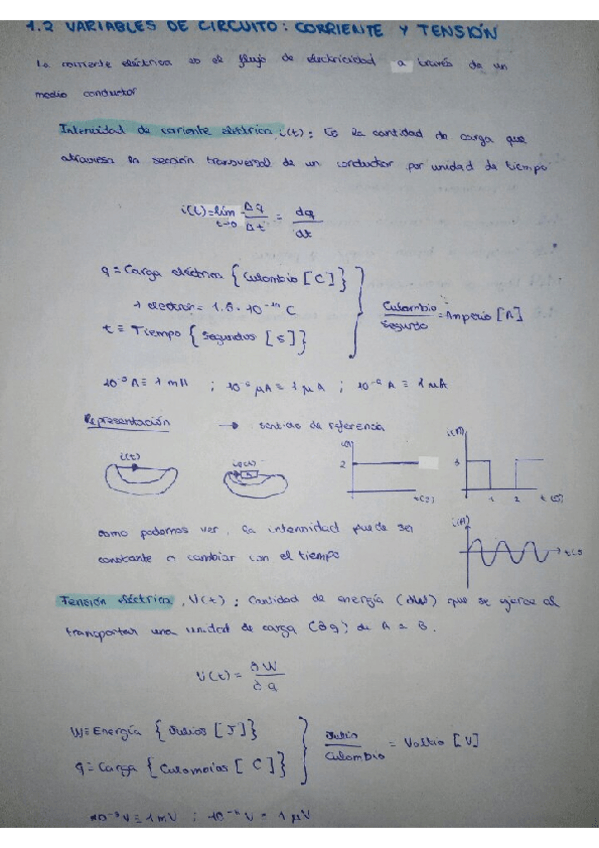 1.2 VARIABLES DE CIRCUITO: CORRIENTE Y TENSIÓN
La corriente eléctrica es el flujo de electricidad a través de un
medio conductor
Intensidad de corriente eléctrica, i(t): Es la cantidad de carga que
atraviesa la sección transversal de un conductor por unidad de tiempo
i(t) = lim Δq/Δt = dq/dt
t→0
q = Carga eléctrica {Culombio [C]}
1 electrón =
t ≡ Tiempo {Segundos [s]}
Culombio/Segundo = Amperio [A]
10⁻³ A ≡ 1 mA ; 10⁻⁶ A ≡ 1
Representación → sentido de referencia
i(t) i(A) i(A)
2
1 2 t (s)
como podemos ver, la intensidad puede ser
constante o cambiar con el tiempo
i(A)
Tensión eléctrica, U(t): Cantidad de energía que se ejerce al
transportar una unidad de carga de A a B.
U(t) = ∂W/∂q
W ≡ Energía {Julios [J]}
q = Carga {Culombios [C]}
Julio/Culombio = Voltio [V]
10⁻³ V ≡ 1 mV ; V = 1 μV